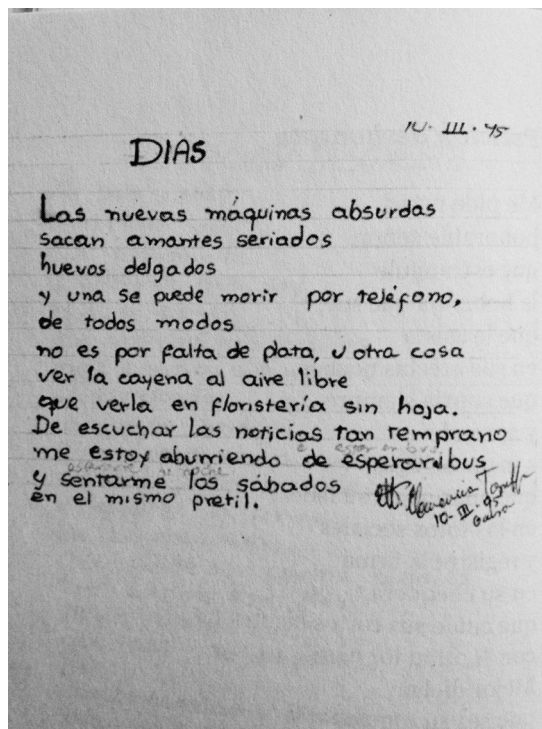 10. III. 95
DIAS
Las nuevas máquinas absurdas
sacan amantes seriados
huevos delgados
y una se puede morir por teléfono,
de todos modos
no es por falta de plata, u otra cosa
ver la cayena al aire libre
que verla en floristería sin hoja.
De escuchar las noticias tan temprano
me estoy aburriendo de esperar bus
y sentarme los sábados
en el mismo pretil.
10. III. 95